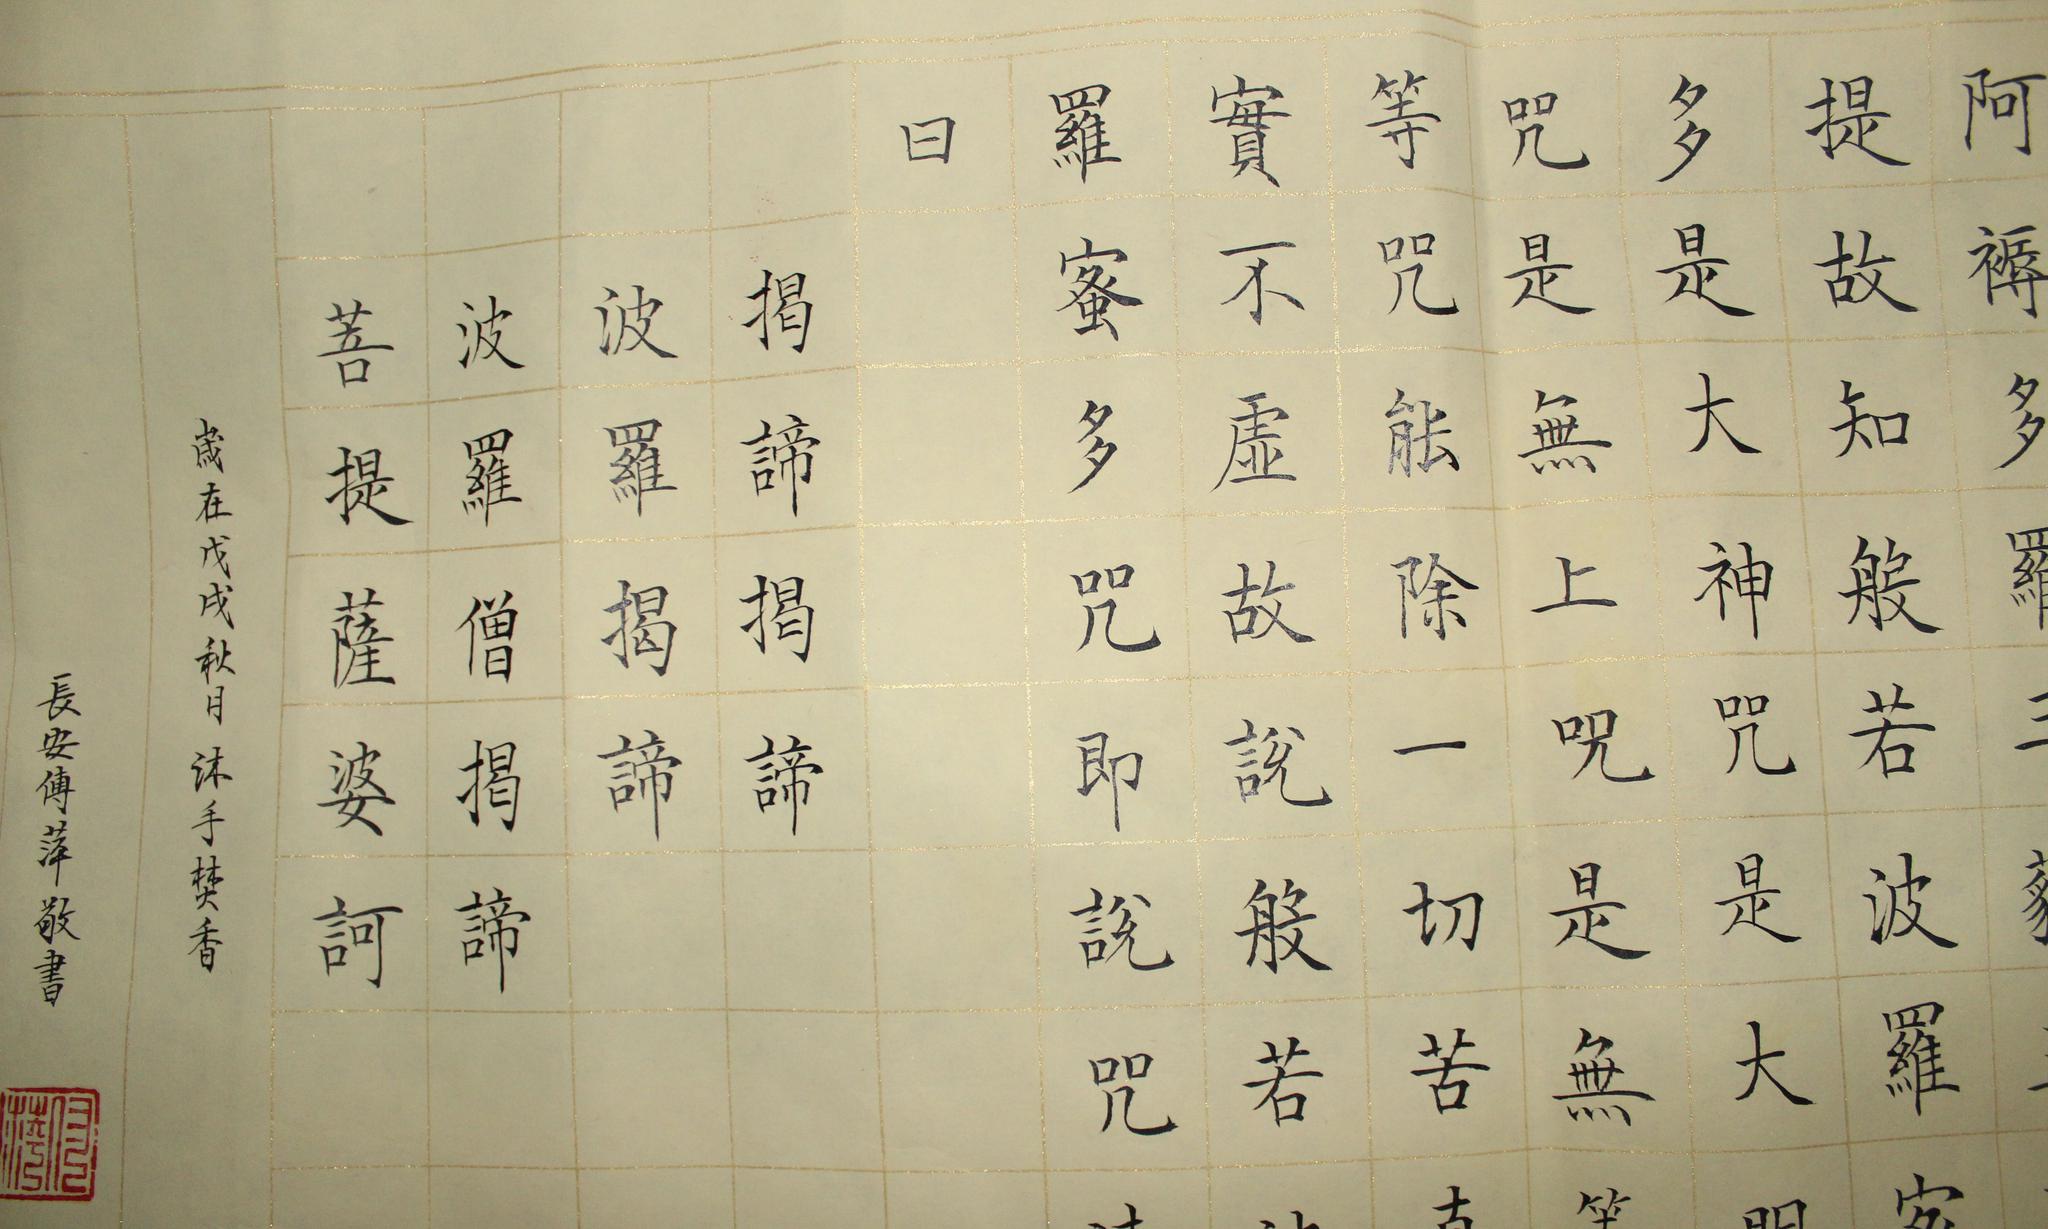 阿褥多羅三藐三
提故知般若波羅蜜
多是大神咒是大明
咒是無上呪是無等
等咒能除一切苦真
實不虛故說般若波
羅蜜多咒即說咒
曰
揭諦揭諦
波羅揭諦
波羅僧揭諦
菩提薩婆訶
歲在戊戌秋月沐手焚香
長安傅萍敬書